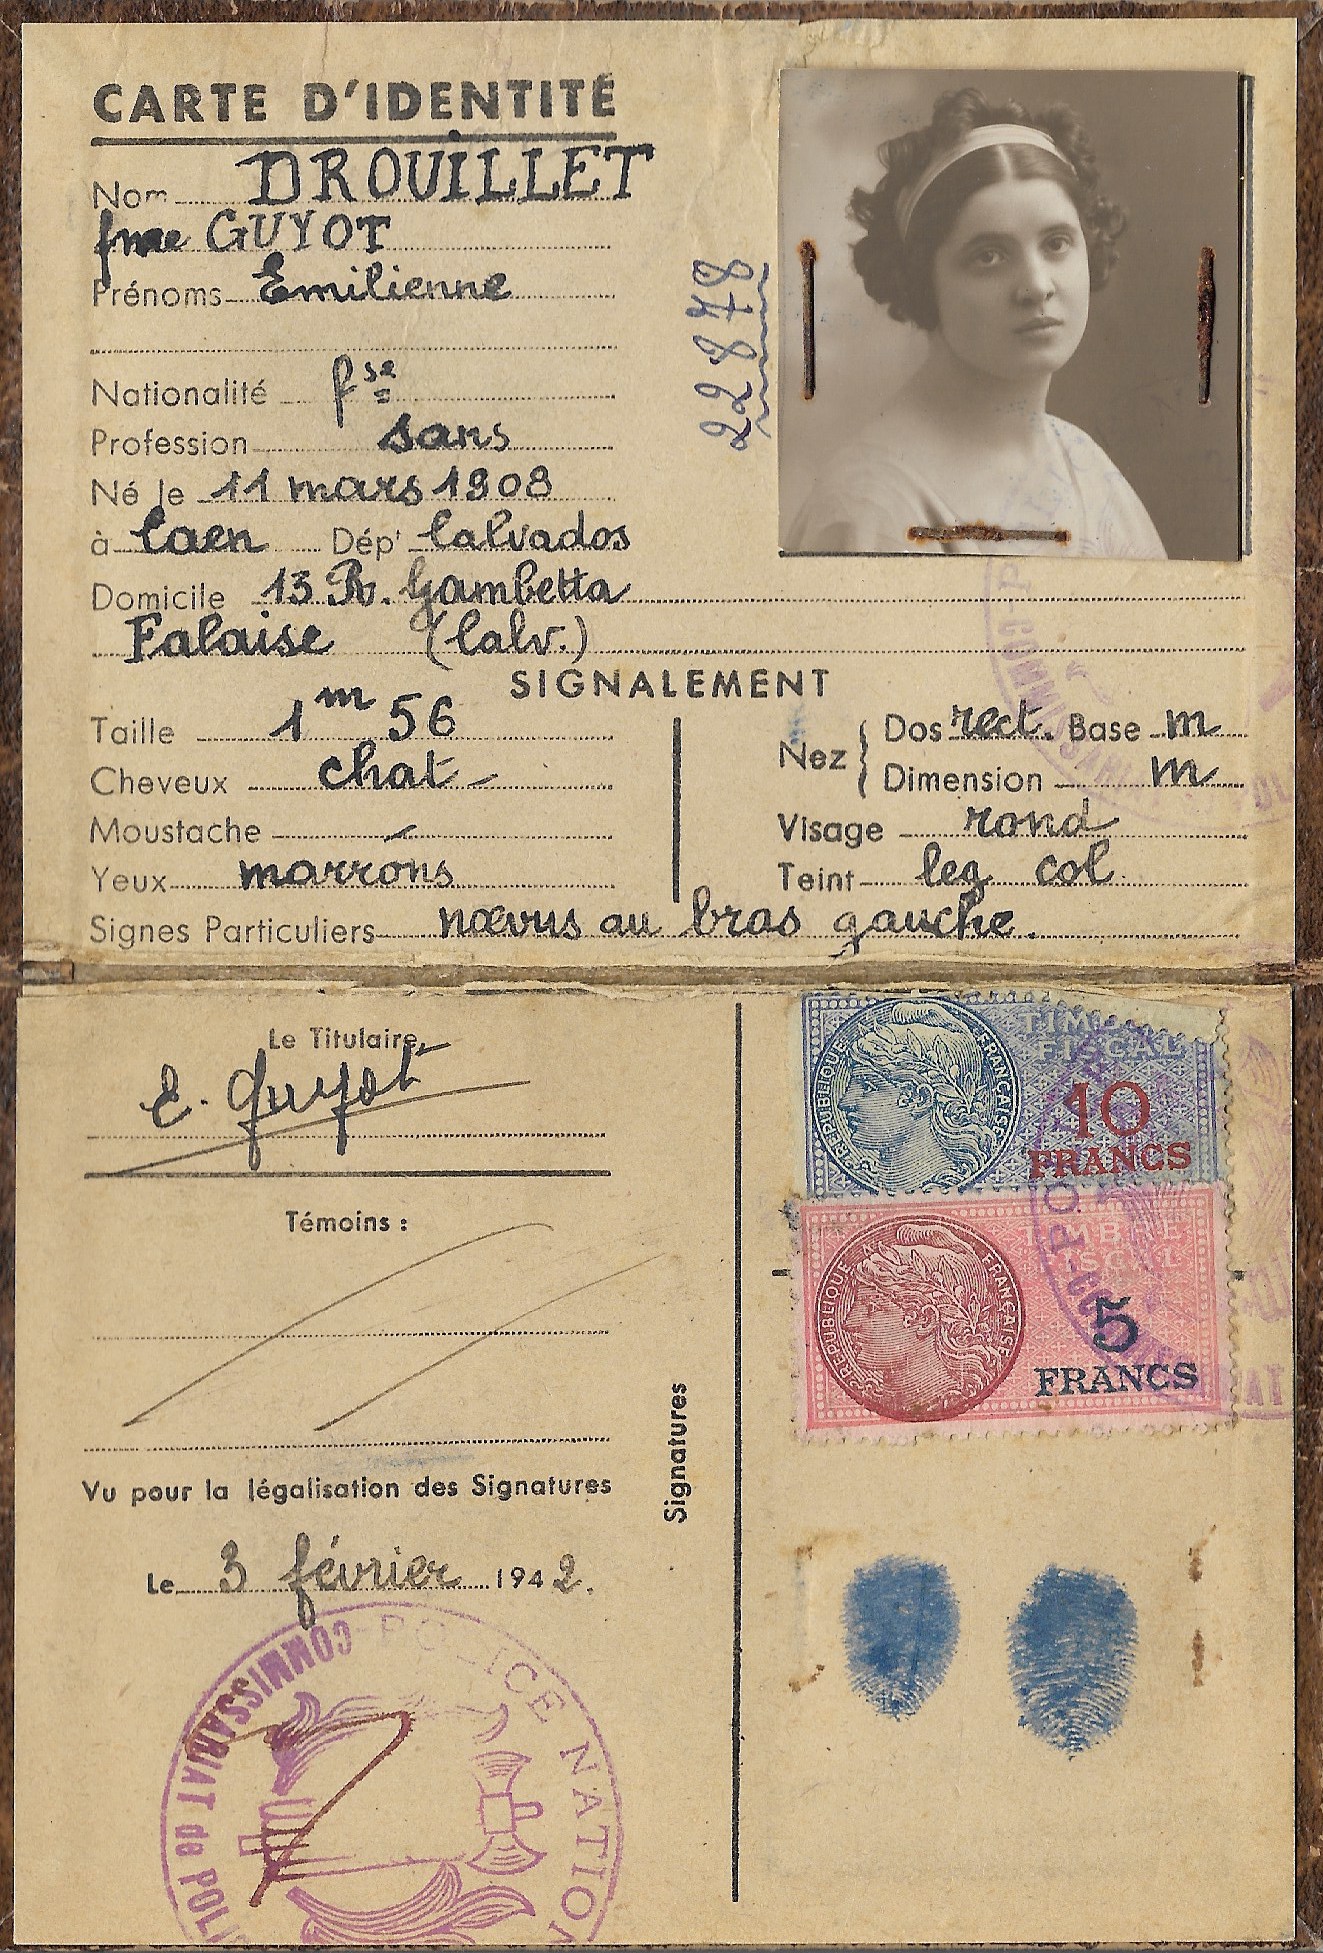 CARTE D'IDENTITÉ
Nom DROUILLET
fme GUYOT
Prénoms Emilienne
22878
Nationalité fse
Profession sans
Né le 11 mars 1908
à Caen Dépt Calvados
Domicile 13 R. Gambetta
Falaise (Calv.)
SIGNALEMENT
Taille 1m 56
Cheveux chat
Moustache -
Yeux marrons
Nez Dos rect. Base m
Dimension m
Visage rond
Teint leg col.
Signes Particuliers nœvus au bras gauche.
Le Titulaire,
E. Guyot
Témoins :
Vu pour la légalisation des Signatures
Le 3 février 1942.
Signatures
RÉPUBLIQUE FRANÇAISE
TIMBRE
FISCAL
10
FRANCS
RÉPUBLIQUE FRANÇAISE
TIMBRE
FISCAL
5
FRANCS
POLICE NATION
COMMISSARIAT de POLI